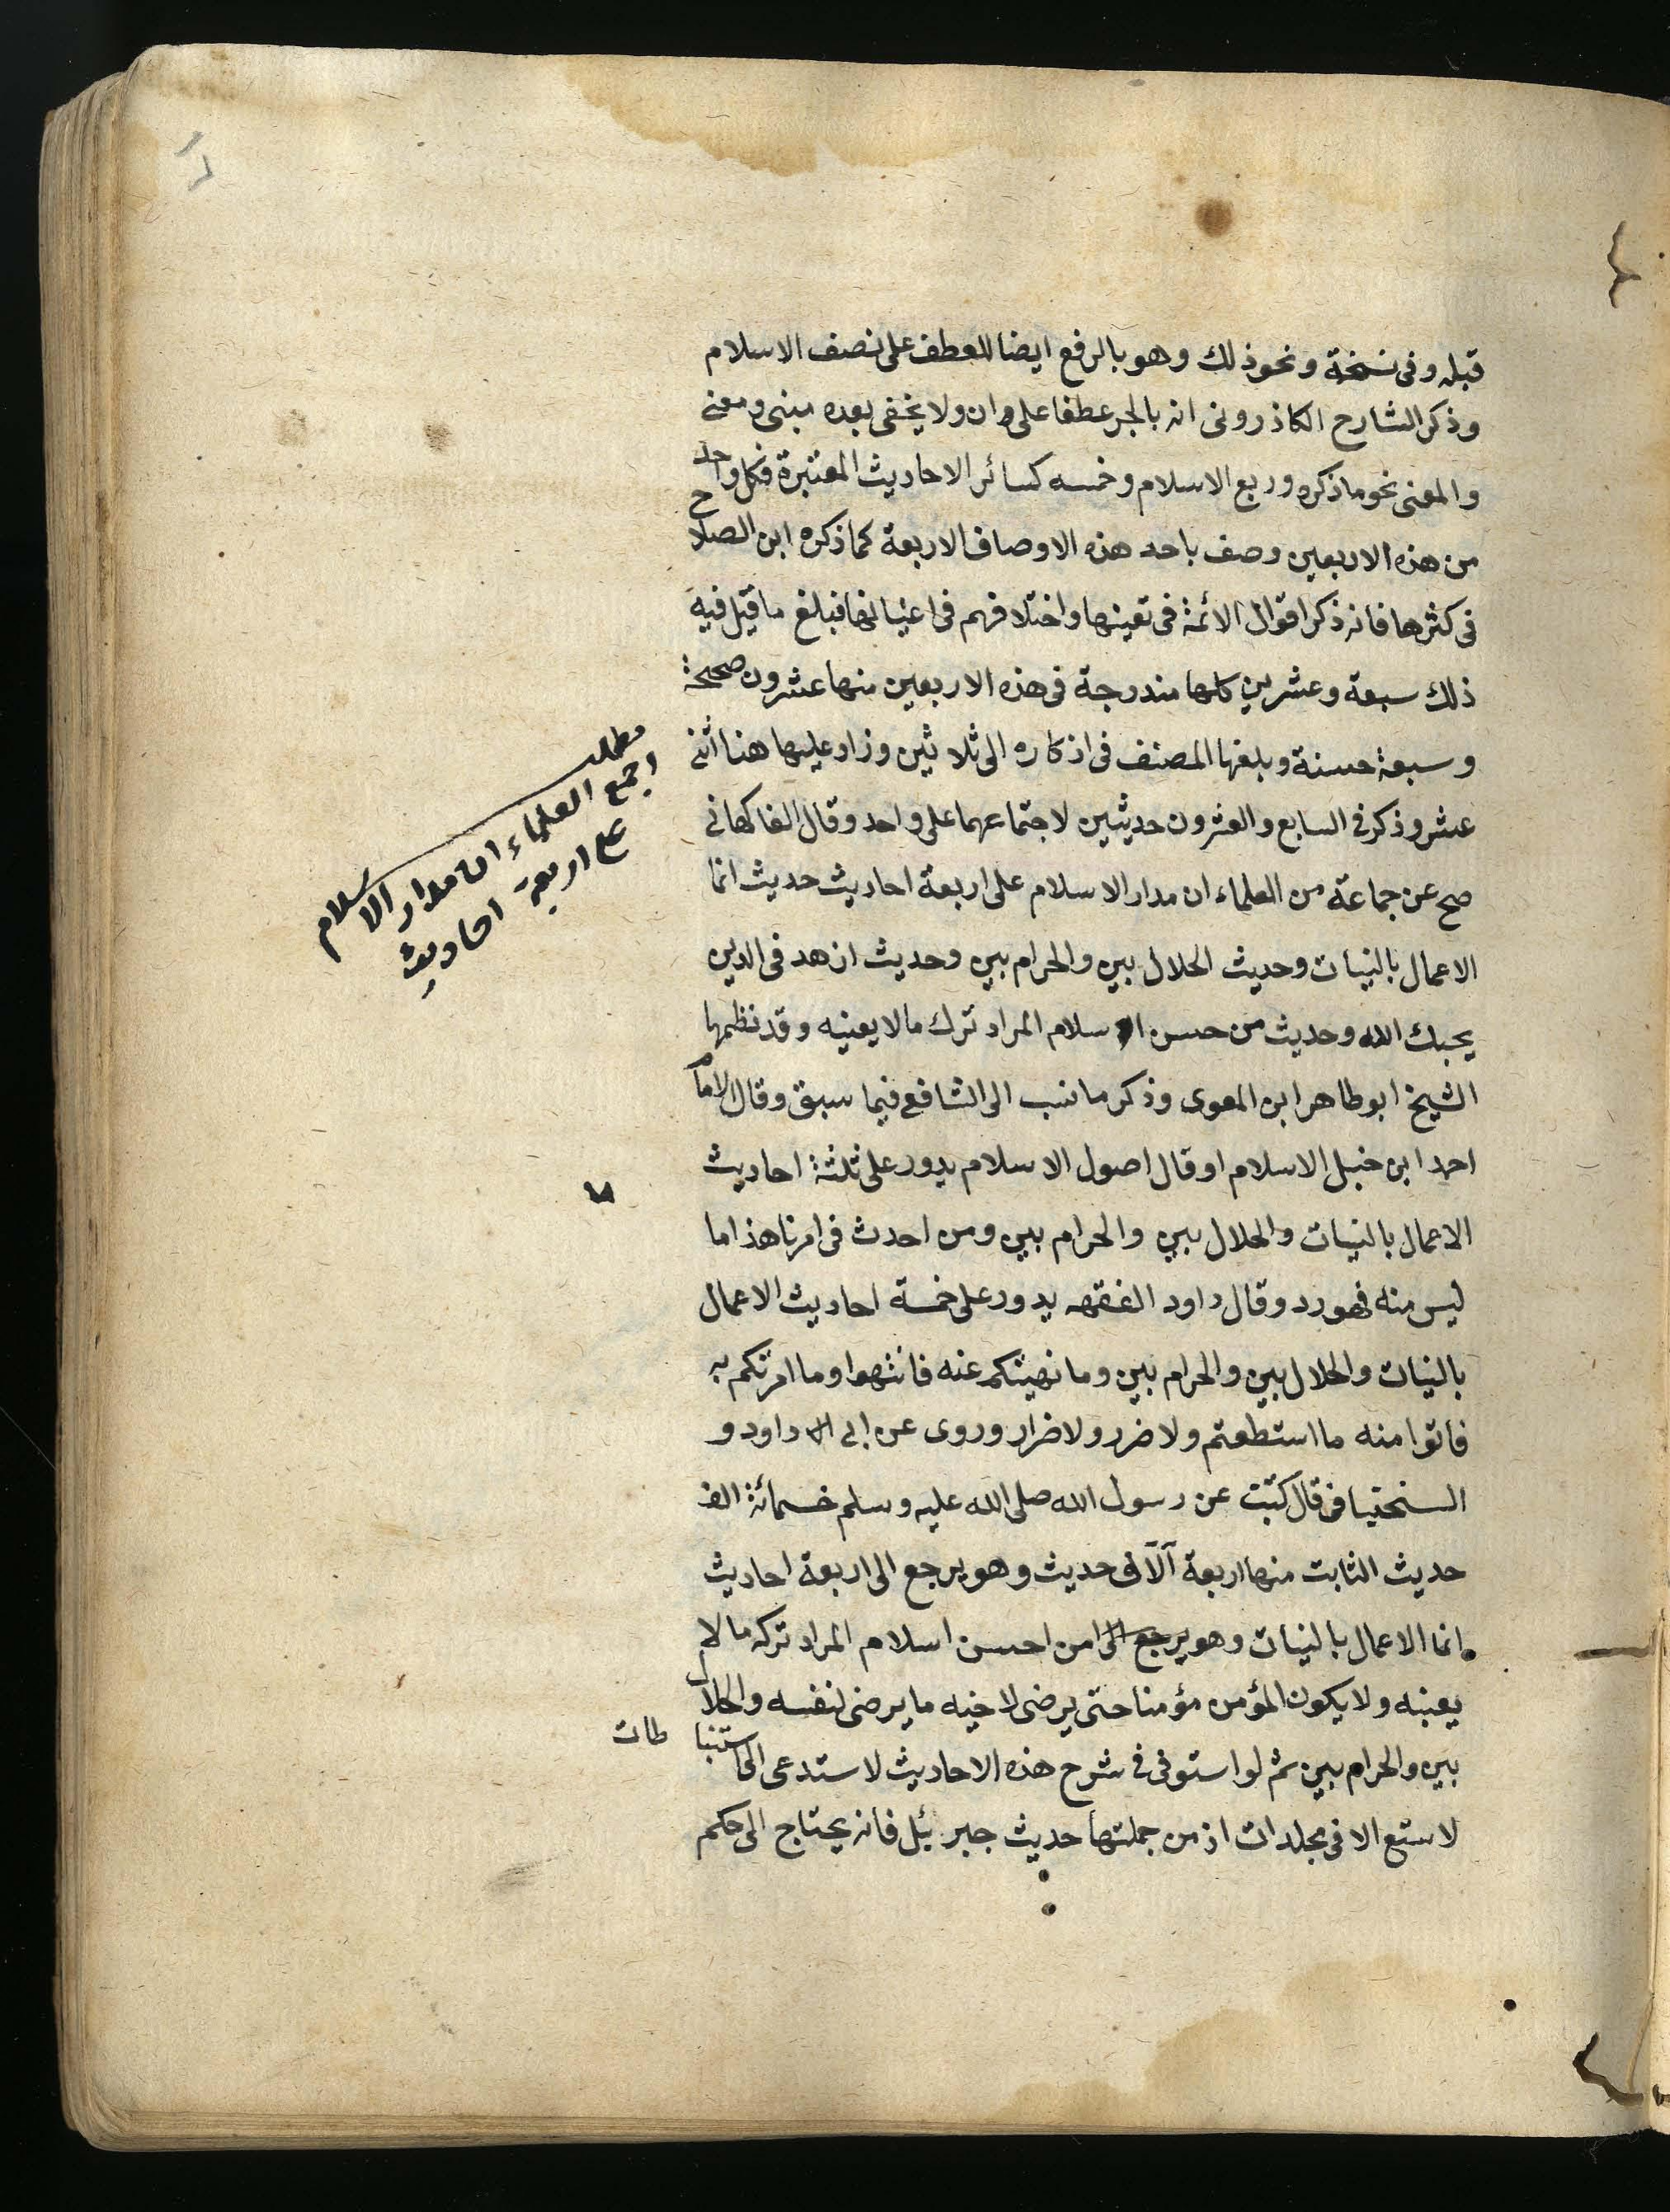 قبله وفى نسخة ونحو ذلك وهو بالرفع ايضا للعطف على نصف الاسلام
وذكر الشارح الكاذرونى انه بالجر عطفا على وان ولا يخفى بعده مبنى ومعنى
والمعنى نحو ما ذكره وربع الاسلام وخمسه كسائر الاحاديث المعتبرة فكل واحد
من هذه الاربعين وصف باحد هذه الاوصاف الاربعة كما ذكره ابن الصلاح
فى كثرها فانه ذكر اقوال الائمة فى تعينها واختلافهم فى اعيانها فبلغ ما قيل فيه
ذلك سبعة وعشرين كلها مندرجة فى هذه الاربعين منها عشرون صحيحة
وسبعة حسنة وبلغها المصنف فى اذكاره الى ثلاثين وزاد عليها هنا اثنى
عشر وذكر فى السابع والعشرون حديثين لاجتماعهما على واحد وقال الفاكهانى
صح عن جماعة من العلماء ان مدار الاسلام على اربعة احاديث حديث انما
الاعمال بالنيات وحديث الحلال بين والحرام بين وحديث ازهد فى الدين
يحبك الله وحديث من حسن اسلام المراد ترك مالا يعنيه وقد نظمها
الشيخ ابو طاهر ابن المعوى وذكر ما نسب الى الشافعى فيما سبق وقال الامام
احمد ابن حنبل الاسلام او قال اصول الاسلام يدور على ثلثة احاديث
الاعمال بالنيات والحلال بين والحرام بين ومن احدث فى امرنا هذا ما
ليس منه فهو رد وقال داود الفقهه يدور على خمسة احاديث الاعمال
بالنيات والحلال بين والحرام بين وما نهيتكم عنه فانتهوا وما امرتكم به
فاتوا منه ما استطعتم ولا ضرر ولا ضرار وروى عن ابى داود و
السنحتيافى قال كتبت عن رسول الله صلى الله عليه وسلم خسمائة الف
حديث الثابت منها اربعة آلآف حديث وهو يرجع الى اربعة احاديث
انما الاعمال بالنيات وهو يرجع الى من احسن اسلام المراد تركه مالا
يعينه ولا يكون المؤمن مؤمنا حتى يرضى لاخيه ما يرضى لنفسه والحلال
بين والحرام بين ثم لو استوفى فى شرح هذه الاحاديث لاستدعى الى استنباطات
لاستع الا فى مجلدات اذ من جملتها حديث جبرئل فانه يحتاج الى حكم
مطلب
اجمع العلماء ان مدار الاسلام
على اربعة احاديث